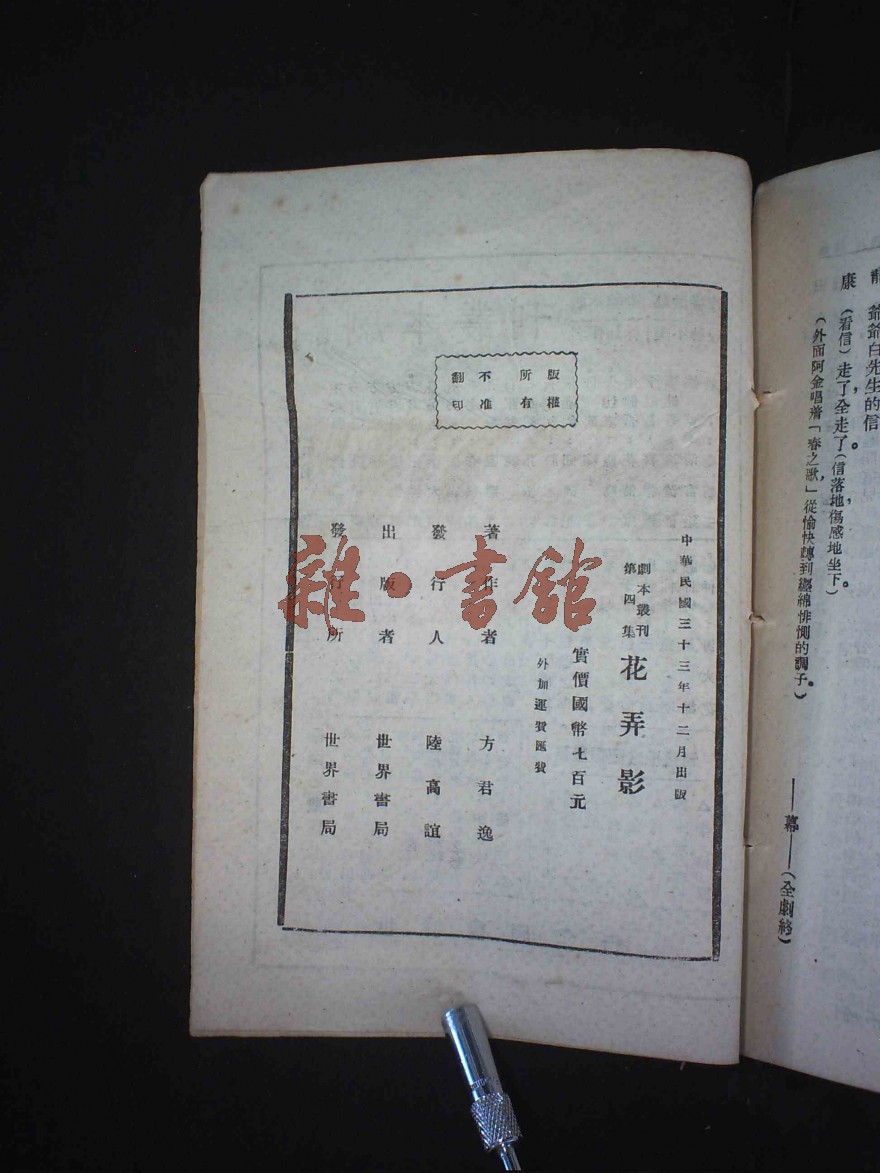 爺爺，白先生的信
康
（看信）走了，全走了。（信落地，傷感地坐下。）
（外面阿金唱着「春之歌」，從愉快轉到纏綿悱惻的調子。）
——幕——（全劇終）
版權所有
不准翻印
中華民國三十三年十二月出版
劇本叢刊第四集
花弄影
實價國幣七百元
外加運費匯費
著作者 方君逸
發行人 陸高誼
出版者 世界書局
發行所 世界書局
雜·書館